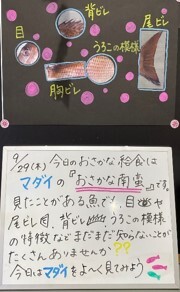 背ビレ
尾ビレ
目
うろこの模様
胸ビレ
9/29(木) 今日のおさかな給食は
マダイの『おさかな南蛮』です。
見たことがある魚でも、目や
尾ビレ、背ビレ、うろこの模様
の特徴などまだまだ知らないことが
たくさんありませんか??
今日はマダイをよ〜く見てみよう